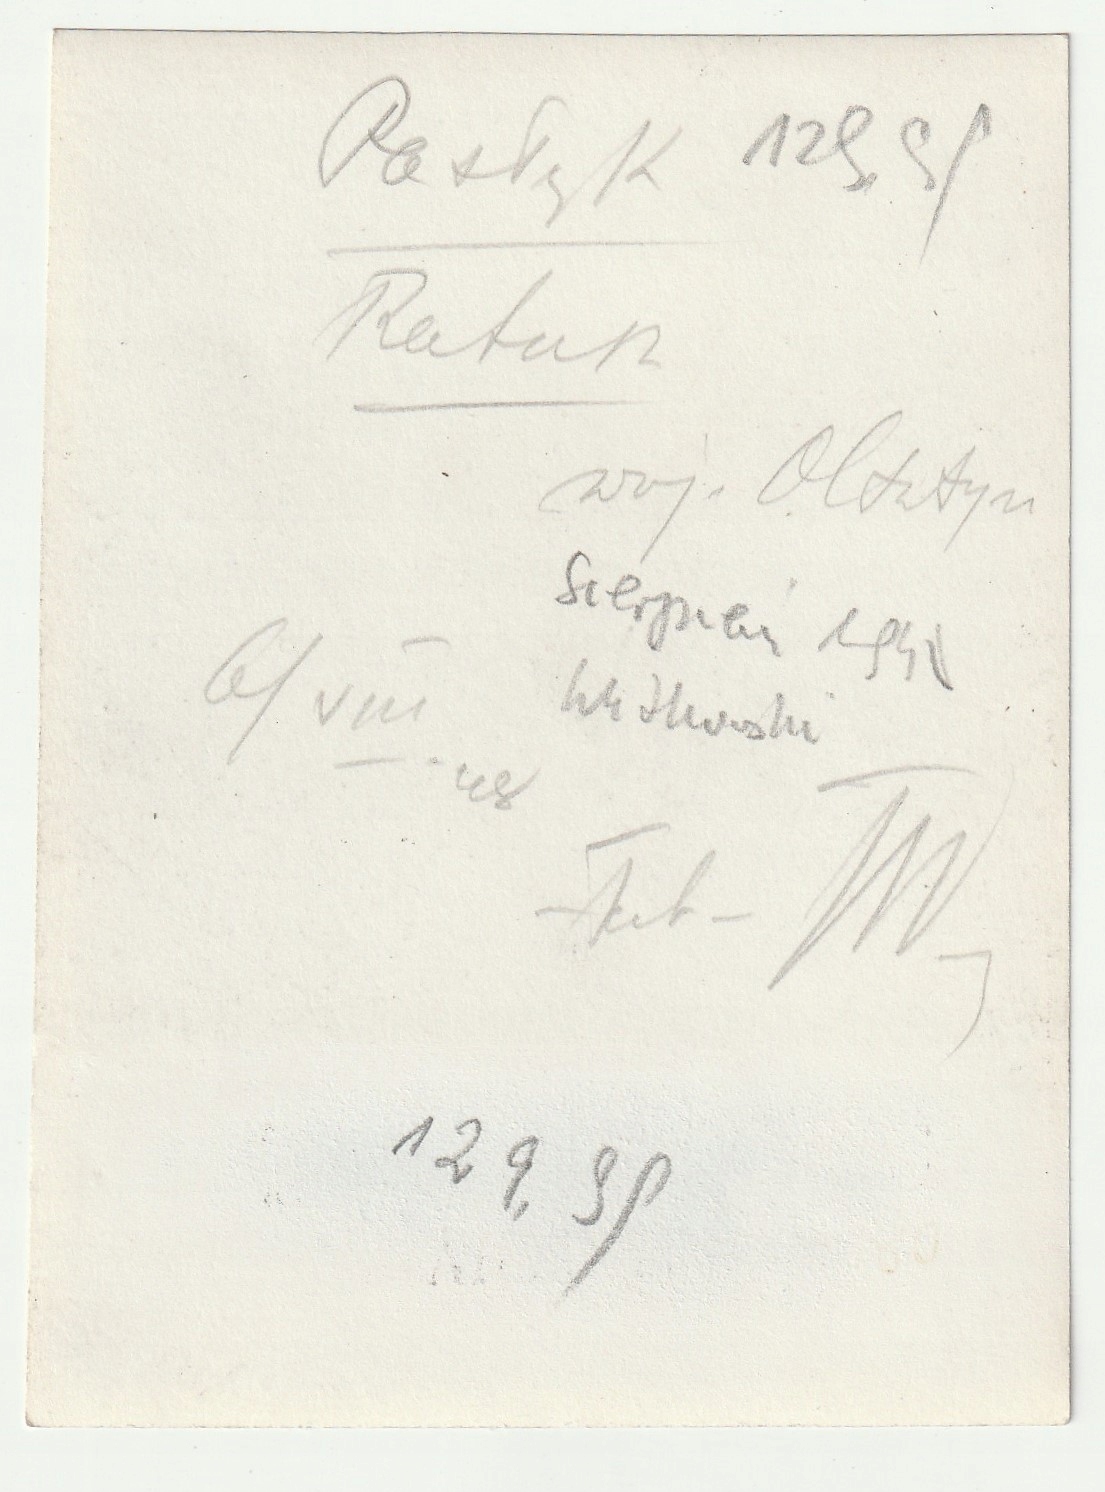 Pasłęk 129.99
Ratusz
woj. Olsztyn
Sierpień 1948
Witkowski
VIII
48
129.99